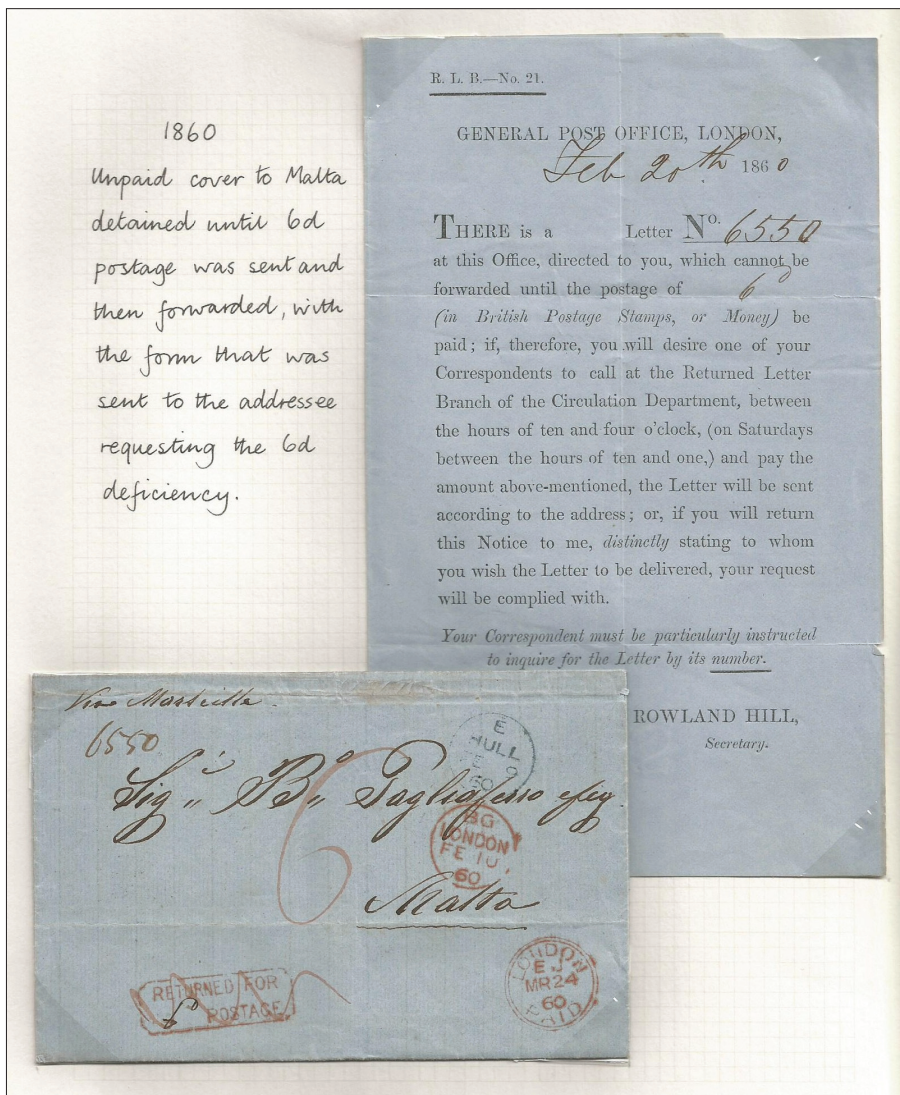 1860
Unpaid cover to Malta
detained until 6d
postage was sent and
then forwarded, with
the form that was
sent to the addressee
requesting the 6d
deficiency.
R. L. B.—No. 21.
GENERAL POST OFFICE, LONDON,
Feb 20th 1860
THERE is a Letter No. 6550
at this Office, directed to you, which cannot be
forwarded until the postage of 6d
(in British Postage Stamps, or Money) be
paid; if, therefore, you will desire one of your
Correspondents to call at the Returned Letter
Branch of the Circulation Department, between
the hours of ten and four o'clock, (on Saturdays
between the hours of ten and one,) and pay the
amount above-mentioned, the Letter will be sent
according to the address; or, if you will return
this Notice to me, distinctly stating to whom
you wish the Letter to be delivered, your request
will be complied with.
Your Correspondent must be particularly instructed
to inquire for the Letter by its number.
ROWLAND HILL,
Secretary.
Via Marseille
6550
E
HULL
60
Sig
6
BG
LONDON
FE 10
60
Malta
LONDON
EJ
MR 24
60
PAID
RETURNED FOR
POSTAGE